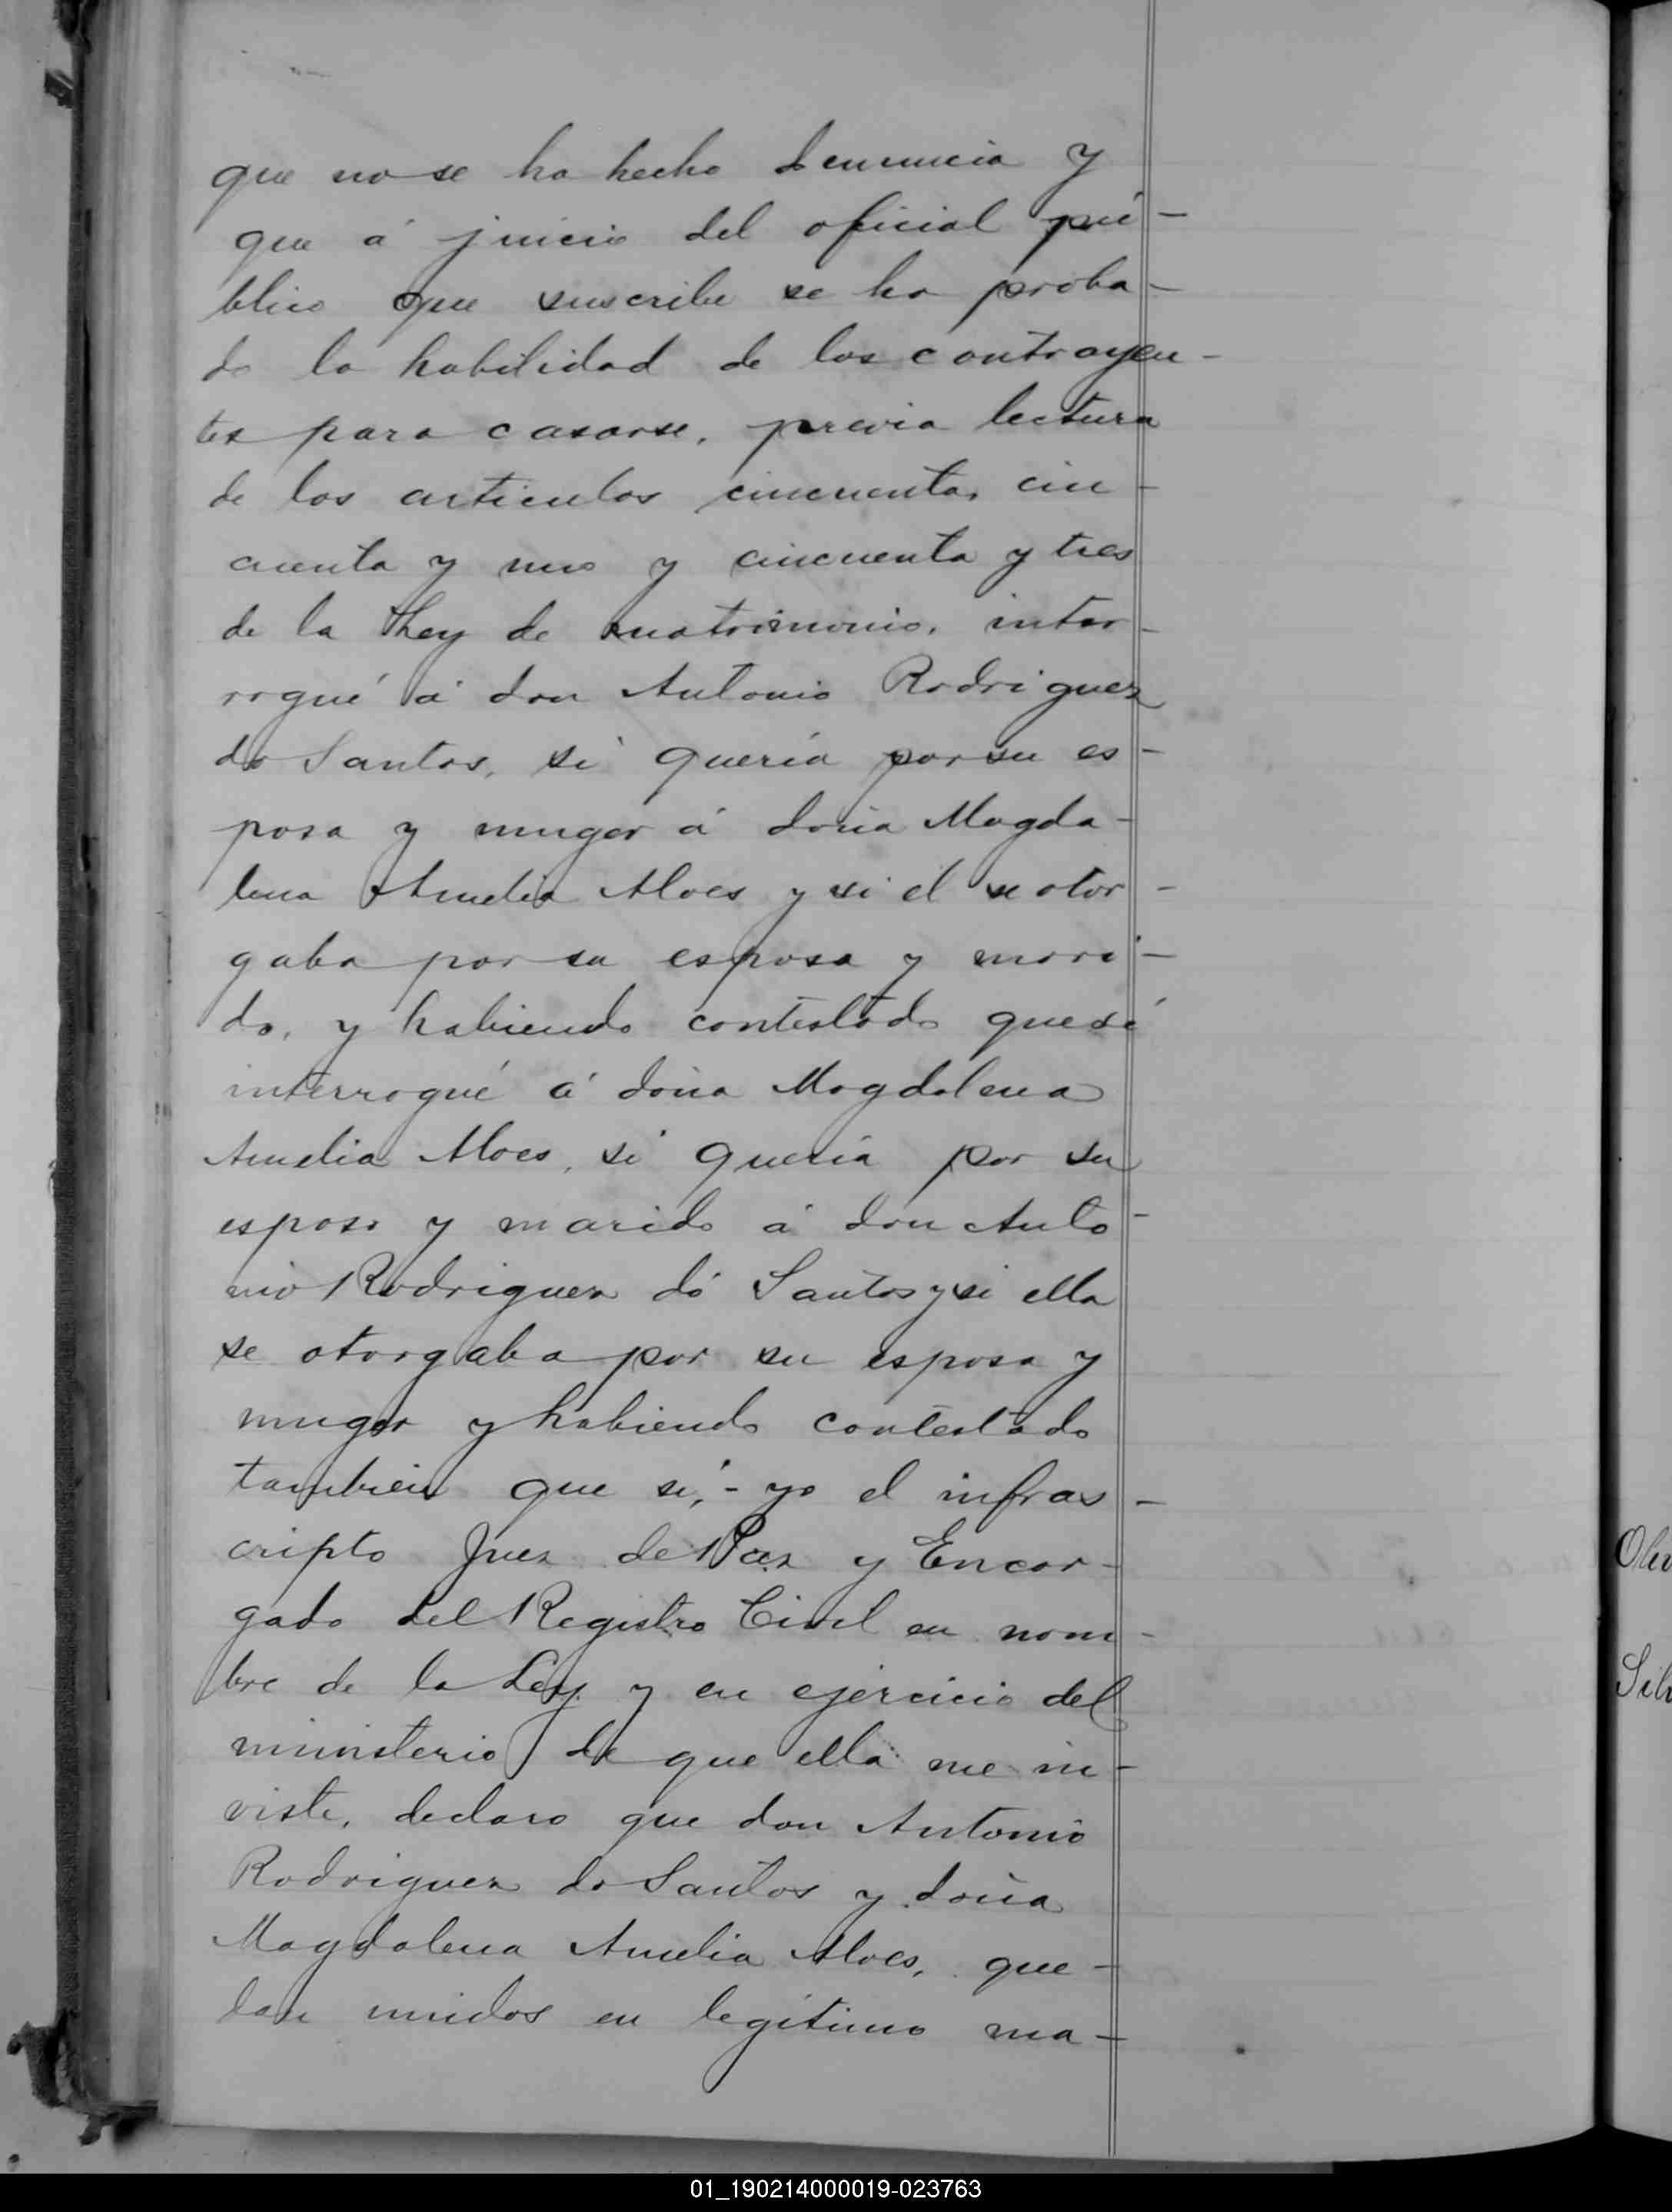 que no se ha hecho denuncia y
que á juicio del oficial pú-
blico que suscribe se ha proba-
do la habilidad de los contrayen-
tes para casarse, previa lectura
de los articulos cincuenta, cin-
cuenta y uno y cincuenta y tres
de la Ley de matrimonio, inter-
rogué á don Antonio Rodriguez
do Santos, si quería por su es-
posa y muger á doña Magda-
lena Amelia Aloes y si el se otor-
gaba por su esposo y mari-
do, y habiendo contestado que sí
interrogué á doña Magdalena
Amelia Aloes, si quería por su
esposo y marido á don Anto-
nio Rodriguez dó Santos y si ella
se otorgaba por su esposa y
muger y habiendo contestado
tambien que sí,- yo el infras-
cripto Juez de Paz y Encar-
gado del Registro Civil en nom-
bre de la Ley y en ejercicio del
ministerio de que ella me in-
viste, declaro que don Antonio
Rodriguez do Santos y doña
Magdalena Amelia Aloes, que-
dan unidos en legítimo ma-
Silv
01_190214000019-023763